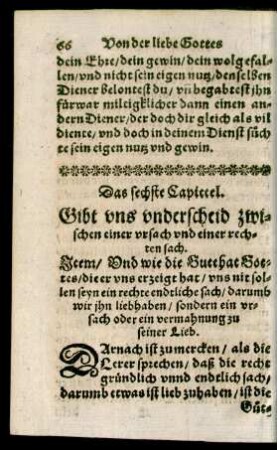 66 Von der liebe Gottes
dein Ehre / dein gewin / dein wolgefal-
len / vnd nicht sein eigen nutz / denselben
Diener belontest du / vñ begabtest jhn
fürwar milcigklicher dann einen an-
dern Diener / der doch dir gleich als vil
diente / vnd doch in deinem Dienst süch
te sein eigen nutz vnd gewin.
Das sechste Capittel.
Gibt vns vnderscheid zwi-
schen einer vrsach vnd einer rech-
ten sach.
Item / Vnd wie die Gutthat Got-
tes / die er vns erzeigt hat / vns nit sol-
len seyn ein rechte endtliche sach / darumb
wir jhn liebhaben / sondern ein vr-
sach oder ein vermahnung zu
seiner Lieb.
DArnach ist zu mercken / als die
Lerer sprechen / daß die recht
gründlich vnnd endtlich sach /
darumb etwas ist lieb zuhaben / ist die
Güt-